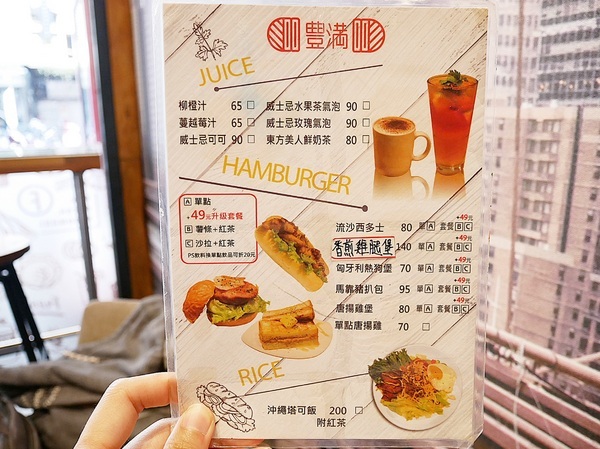 豐滿
JUICE
柳橙汁 65 □ 威士忌水果茶氣泡 90 □
蔓越莓汁 65 □ 威士忌玫瑰氣泡 90 □
威士忌可可 90 □ 東方美人鮮奶茶 80 □
HAMBURGER
A 單點
+49元升級套餐
B 薯條+紅茶
C 沙拉+紅茶
PS飲料換單點飲品可折20元
+49元
流沙西多士 80 單A 套餐BC
+49元
香煎雞腿堡 140 單A 套餐BC
+49元
匈牙利熱狗堡 70 單A 套餐BC
+49元
馬靠豬扒包 95 單A 套餐BC
+49元
唐揚雞堡 80 單A 套餐BC
單點唐揚雞 70 □
RICE
沖繩塔可飯 200 □
附紅茶